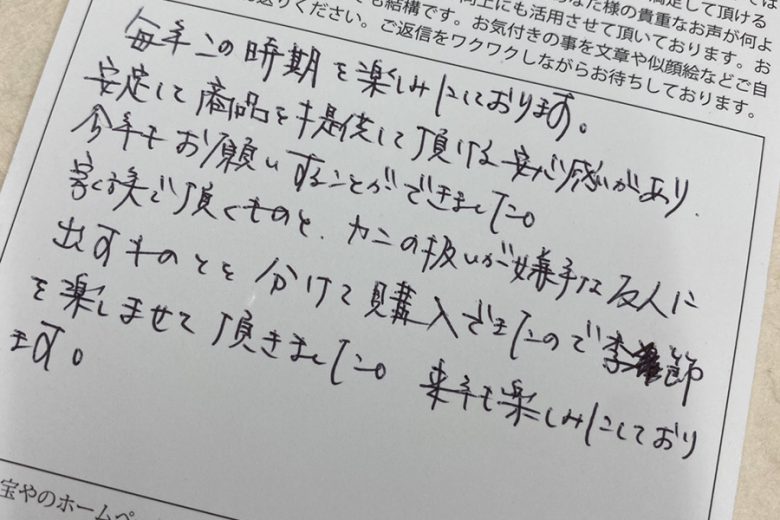 な様の貴重なお声が何よ
向上にも活用させて頂いております。お
でも結構です。お気付きの事を文章や似顔絵などご自
送りください。ご返信をワクワクしながらお待ちしております。
毎年この時期を楽しみにしております。
安定して商品を提供して頂ける安心感があり、
今年もお願いすることができました。
家族で頂くものと、カニの扱いが嫌手な友人に
出すものとを分けて購入できたので季節
を楽しませて頂きました。来年も楽しみにしており
ます。
宝やのホームペー